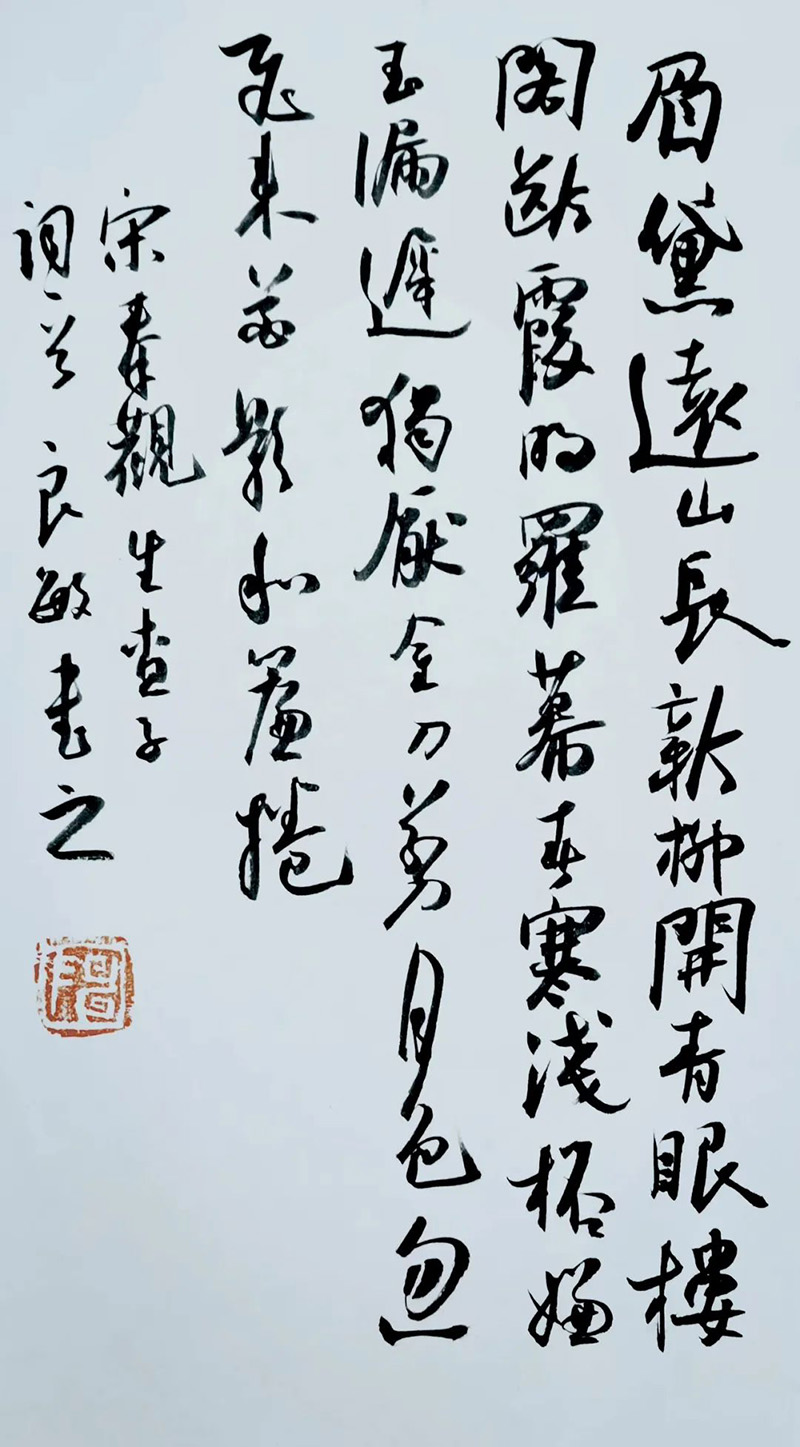 眉黛遠山長新柳開青眼樓
閣斷霞明羅幕春寒淺桮嫌
玉漏遲燭厭金刀剪月色忽
飛來花影和簾捲
宋秦觀生查子
詞一首良敏書之